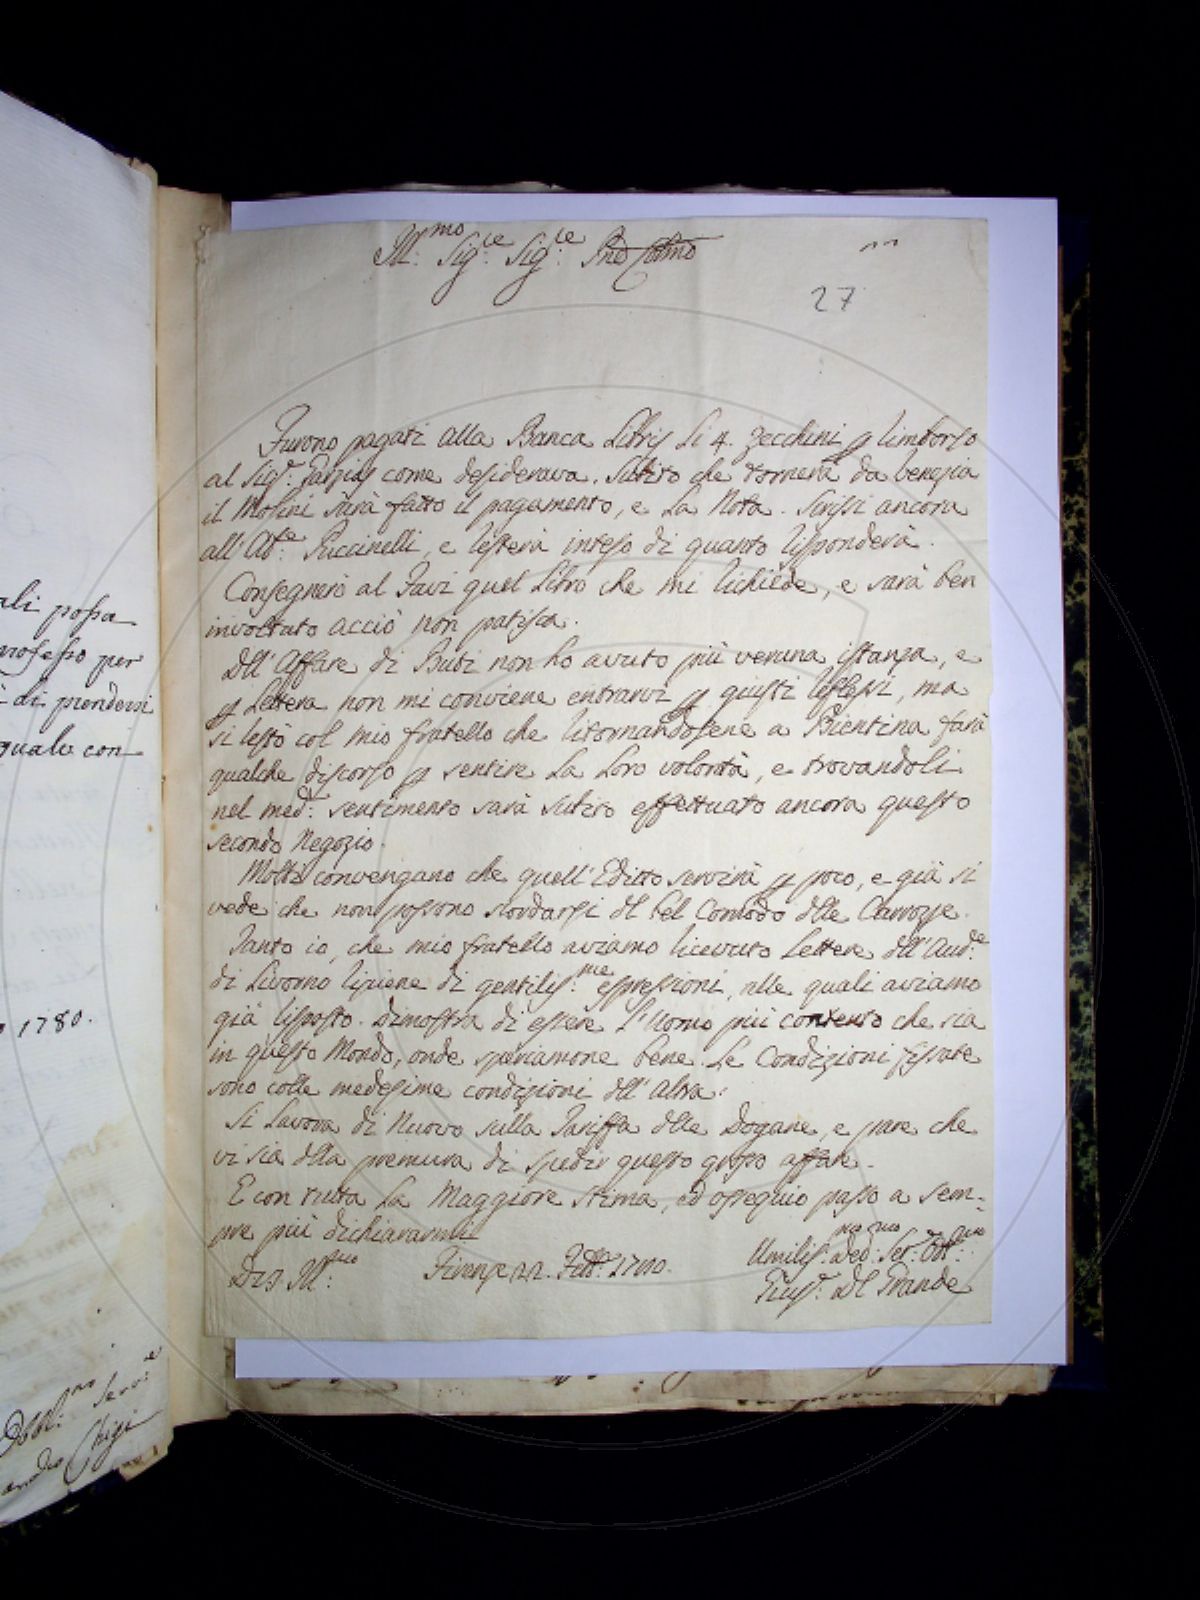 Ill:mo Sig:re Sig:re Pne Colmo
27
Furono pagati alla Banca Libris li 4. zecchini p rimborso
al Sig:r come desiderava. Subito che tornerà da Venezia
il Molini sarà fatto il pagamento, e la Nota. Scrissi ancora
all'Ab:e Puccinelli, e resterà inteso di quanto risponderà.
Consegnerò al Favi quel Libro che mi richiede, e sarà ben
involtato acciò non patisca.
Dell'Affare di Buti non ho avuto più veruna istanza, e
p Lettera non mi conviene entrarvi p giusti riflessi, ma
si restò col mio fratello che ritornandosene a Bientina farà
qualche discorso p sentire la loro volontà, e trovandoli
nel med:o sentimento sarà subito effettuato ancora questo
secondo Negozio.
Molti convengano che quell'Editto servirà p poco, e già si
vede che non possono scordarsi del bel Comodo delle Carrozze.
Tanto io, che mio fratello aviamo ricevuto Lettere dell'Aud:e
di Livorno ripiene di gentilis:me espressioni, alle quali aviamo
già risposto. Dimostra di essere l'Uomo più contento che sia
in questo Mondo, onde speriamone bene. Le Condizioni fissate
sono colle medesime condizioni dell'Altra.
Si lavora di Nuovo sulla Tariffa delle Dogane, e pare che
vi sia della premura di spedir questo grosso affare.
E con tutta la Maggiore stima, ed ossequio passo a sem-
pre più dichiararmi
Di V. S. Ill:ma
Firenze 22. Febb:o 1780.
Umilis:mo Dev:mo Ser:e Obb:mo
Del Grande
ali possa
professo per
di prendersi
quale con
1780.
Serv:e
Chigi